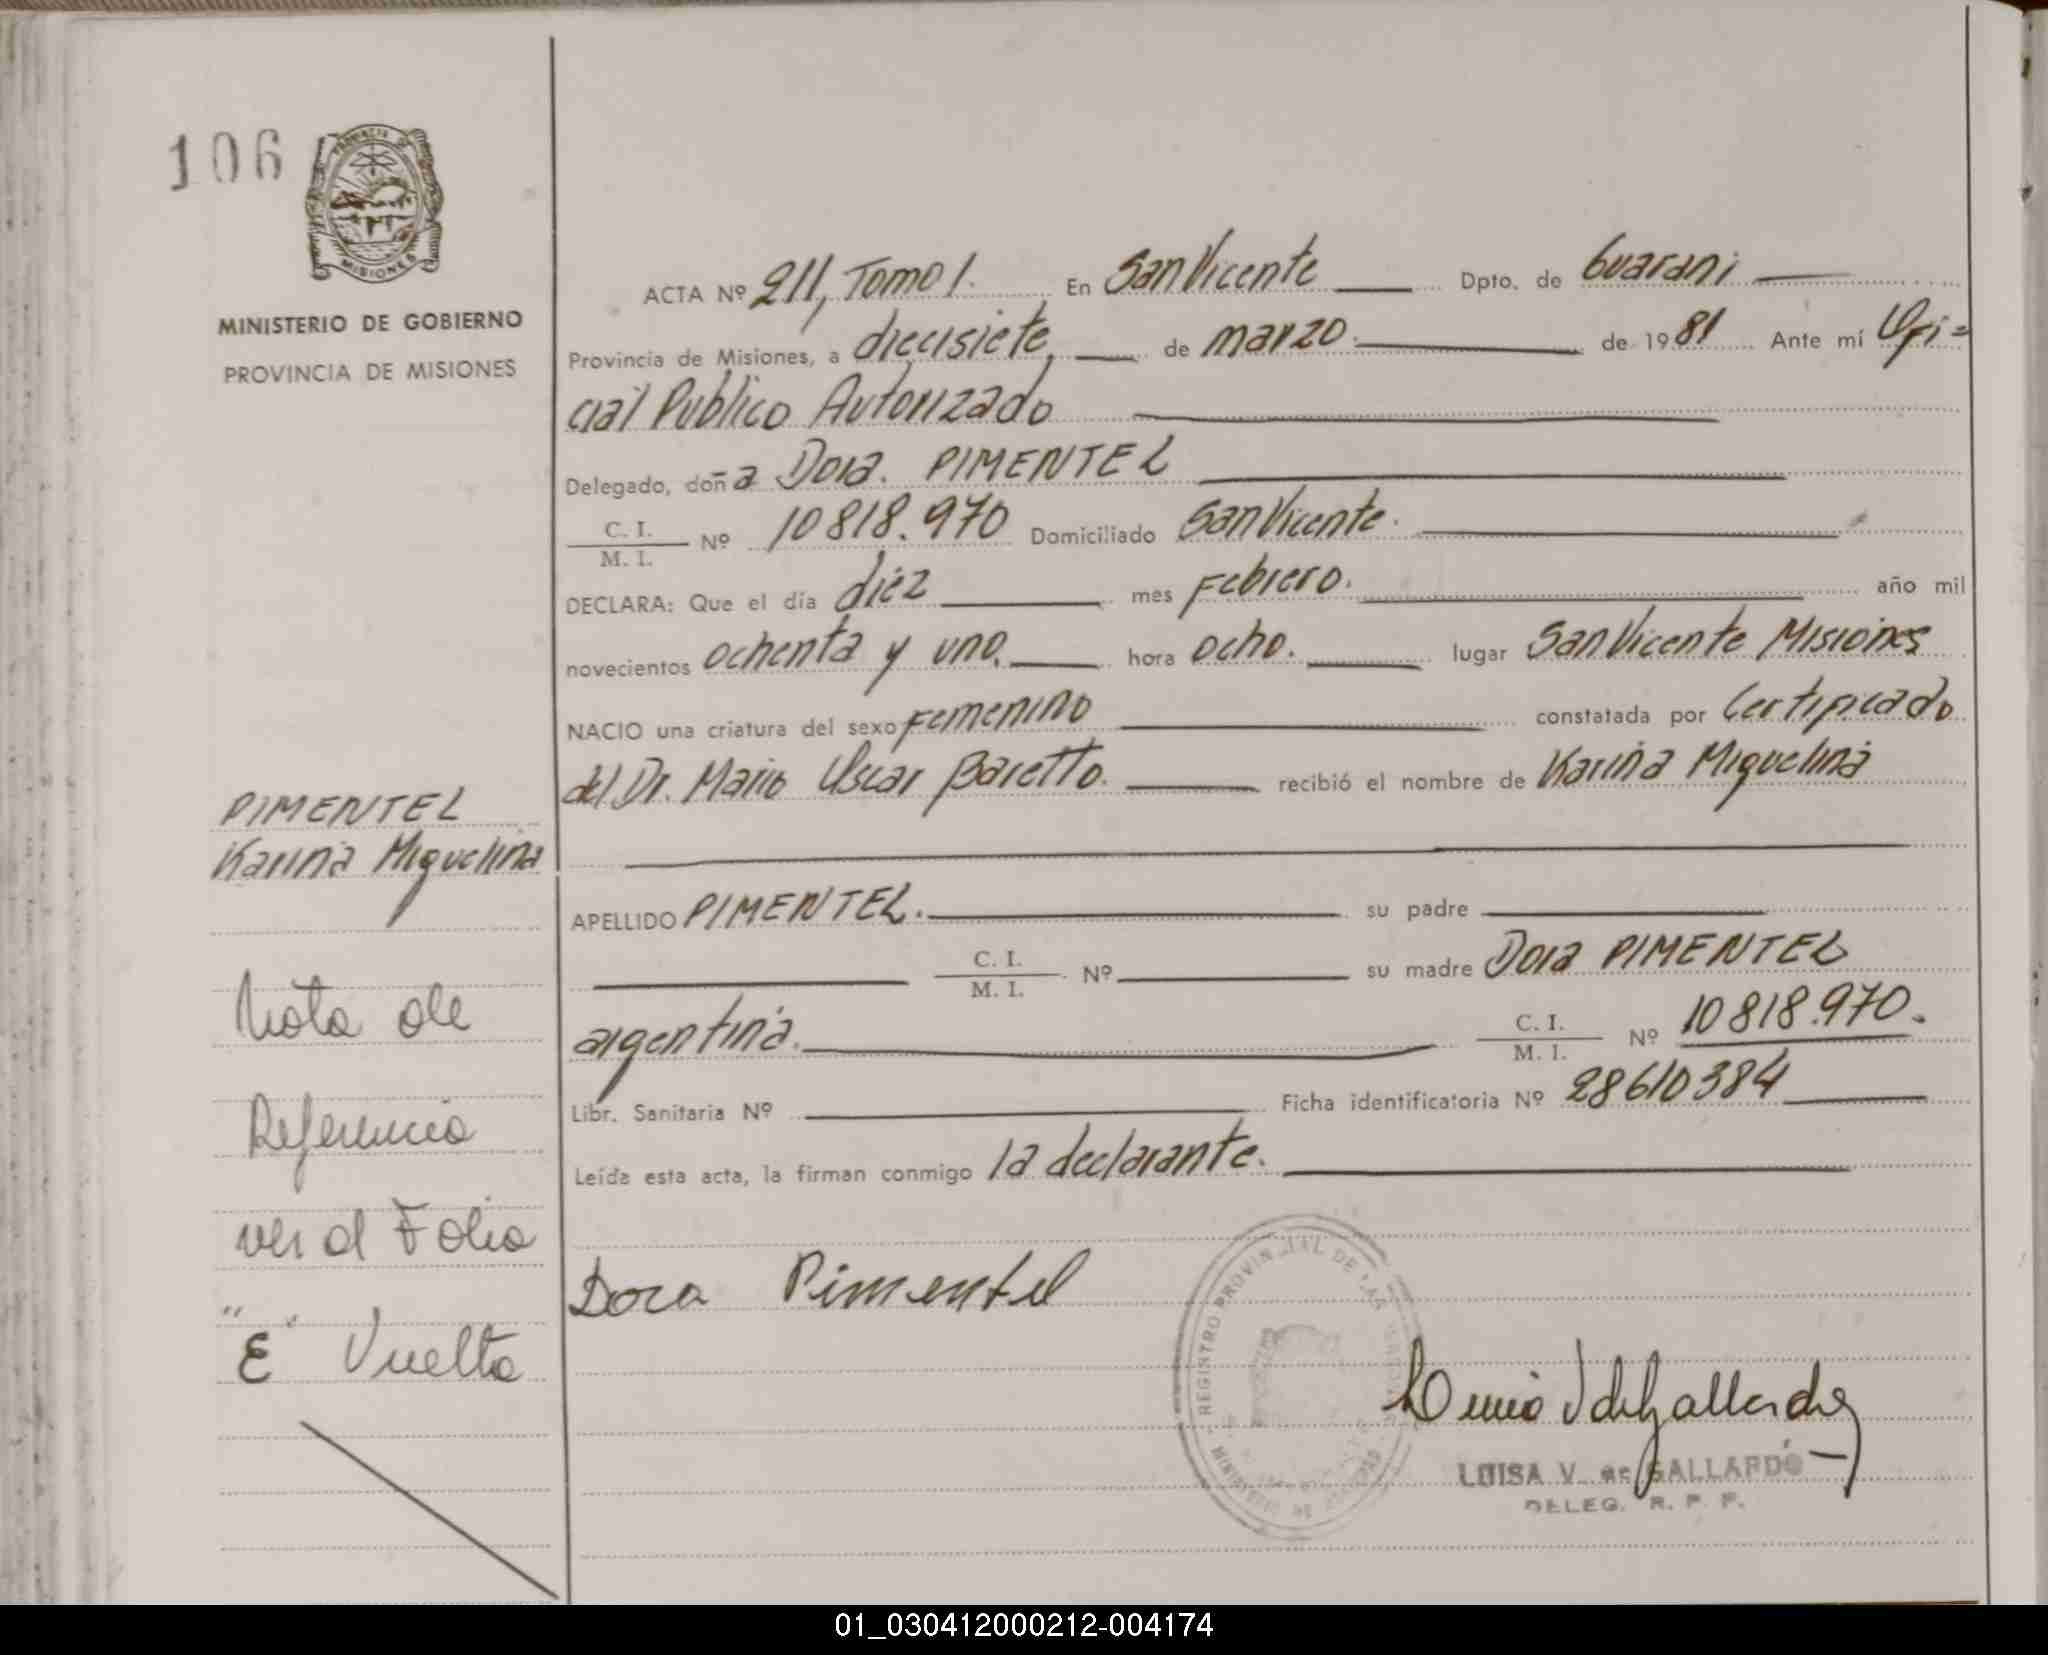 106
PROVINCIA DE
MISIONES
MINISTERIO DE GOBIERNO
PROVINCIA DE MISIONES
ACTA Nº 211, Tomo I. En San Vicente Dpto. de Guarani
Provincia de Misiones, a diecisiete, de marzo. de 1981 Ante mí Ofi=
cial Publico Autorizado
Delegado, doña Dora. PIMENTEL
C. I.
M. I. Nº 10818.970 Domiciliado San Vicente.
DECLARA: Que el día diez mes Febrero. año mil
novecientos ochenta y uno, hora ocho. lugar San Vicente Misiones
NACIO una criatura del sexo Femenino constatada por Certificado
del Dr. Mario Oscar Baretto. recibió el nombre de Karina Miguelina
PIMENTEL
Karina Miguelina
APELLIDO PIMENTEL. su padre
C. I.
M. I. Nº su madre Dora PIMENTEL
argentina. C. I.
M. I. Nº 10818.970.
Libr. Sanitaria Nº Ficha identificatoria Nº 28610384
Leída esta acta, la firman conmigo la declarante.
Nota de
Referencia
ver al Folio
"E" Vuelta
Dora Pimentel
REGISTRO PROVINCIAL DE LAS
LUISA V. de GALLARDO
DELEG. R. P. P.
01_030412000212-004174